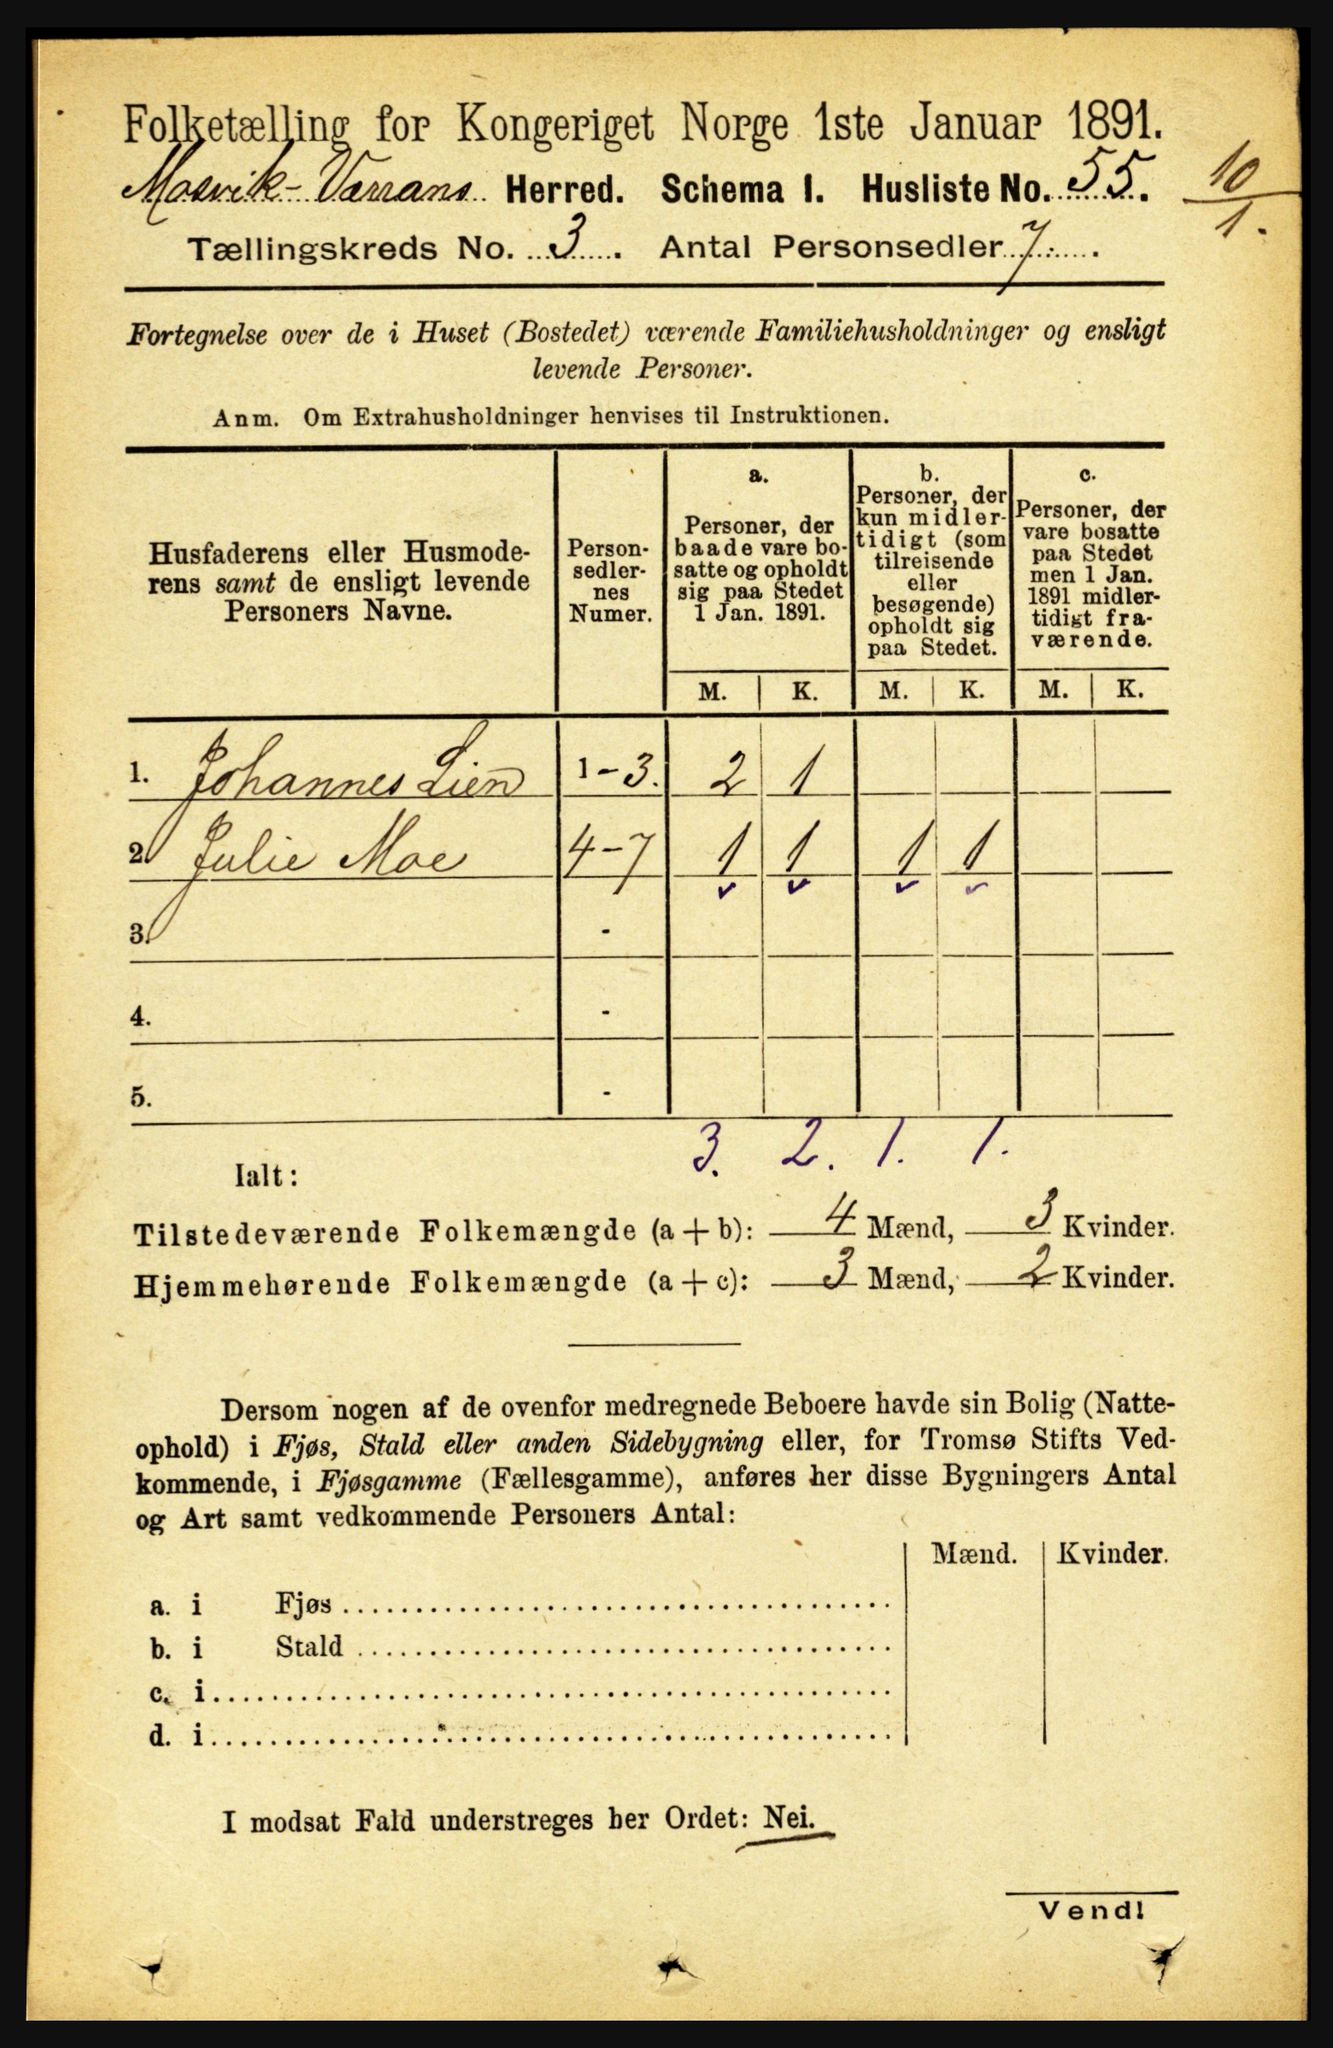 Folketælling for Kongeriget Norge 1ste Januar 1891.
Mosvik-Værrans Herred. Schema I. Husliste No. 55.
10
1.
Tællingskreds No. 3. Antal Personsedler 7.
Fortegnelse over de i Huset (Bostedet) værende Familiehusholdninger og ensligt
levende Personer.
Anm. Om Extrahusholdninger henvises til Instruktionen.
Husfaderens eller Husmode-
rens samt de ensligt levende
Personers Navne.
Person-
sedler-
nes
Numer.
a.
Personer, der
baade vare bo-
satte og opholdt
sig paa Stedet
1 Jan. 1891.
b.
Personer, der
kun midler-
tidigt (som
tilreisende
eller
besøgende)
opholdt sig
paa Stedet.
c.
Personer, der
vare bosatte
paa Stedet
men 1 Jan.
1891 midler-
tidigt fra-
værende.
M. K. M. K. M. K.
1. Johannes Lien 1-3. 2 1
2. Julie Moe 4-7 1 1 1 1
3. -
4. -
5. -
Ialt: 3. 2. 1. 1.
Tilstedeværende Folkemængde (a + b): 4 Mænd, 3 Kvinder.
Hjemmehørende Folkemængde (a + c): 3 Mænd, 2 Kvinder.
Dersom nogen af de ovenfor medregnede Beboere havde sin Bolig (Natte-
ophold) i Fjøs, Stald eller anden Sidebygning eller, for Tromsø Stifts Ved-
kommende, i Fjøsgamme (Fællesgamme), anføres her disse Bygningers Antal
og Art samt vedkommende Personers Antal:
Mænd. Kvinder.
a. i Fjøs
b. i Stald
c. i
d. i
I modsat Fald understreges her Ordet: Nei.
Vend!